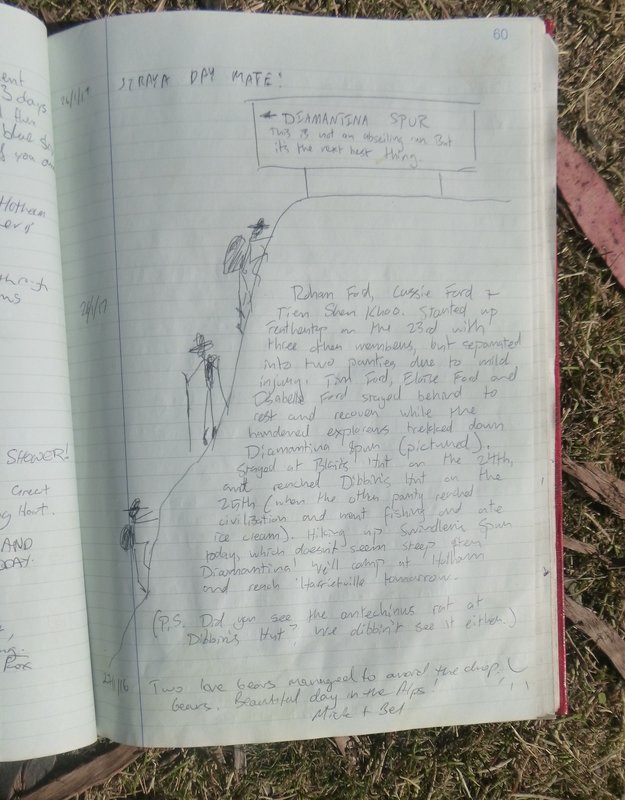 60
26/1/17 STRAYA DAY MATE!
← DIAMANTINA SPUR
This is not an abseiling run. But
its the next best thing.
26/1/17
Rohan Ford, Cassie Ford +
Tien Shen Khoo. Started up
Feathertop on the 23rd with
three other members, but separated
into two parties due to mild
injury. Tim Ford, Eloise Ford and
Isabelle Ford stayed behind to
rest and recover while the
hardened explorers trekked down
Diamantina Spur (pictured).
Stayed at Blairs Hut on the 24th,
and reached Dibbin's Hut on the
25th (when the other party reached
civilization and went fishing and ate
ice cream). Hiking up Swindlers Spur
today, which doesn't seem steep after
Diamantina! We'll camp at
and reach Harrietville tomorrow.
(P.S. Did you see the antechinus rat at
Dibbin's Hut? We dibbin't see it either.)
27/1/16 Two love bears managed to avoid the drop
bears. Beautiful day in the Alps!
+ Bel
3 days
then
blue
if you
Hotham
SHOWER!
Hout.
AND
DAY.
Fox